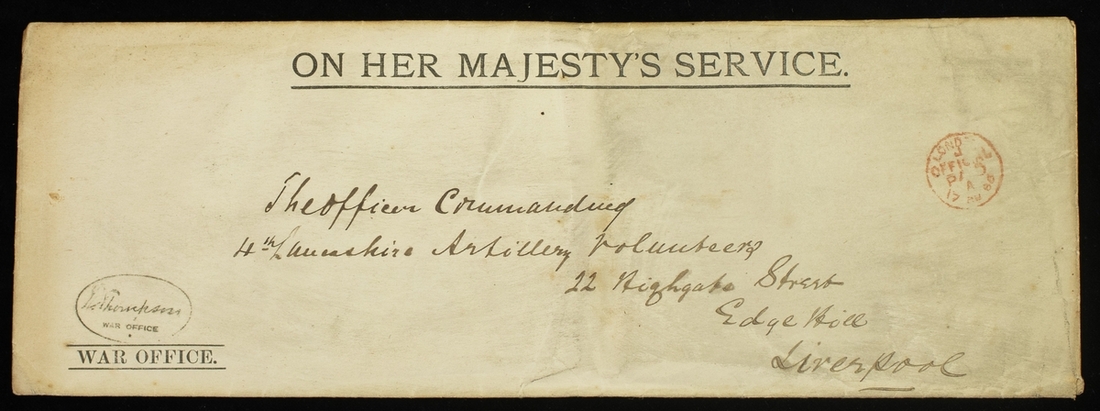 ON HER MAJESTY'S SERVICE.
LOND
OFFICIAL
PAID
17
86
The Officer Commanding
4th Lancashire Artillery Volunteers
22 Highgate Street
Edge Hill
Liverpool
Thompson
WAR OFFICE
WAR OFFICE.